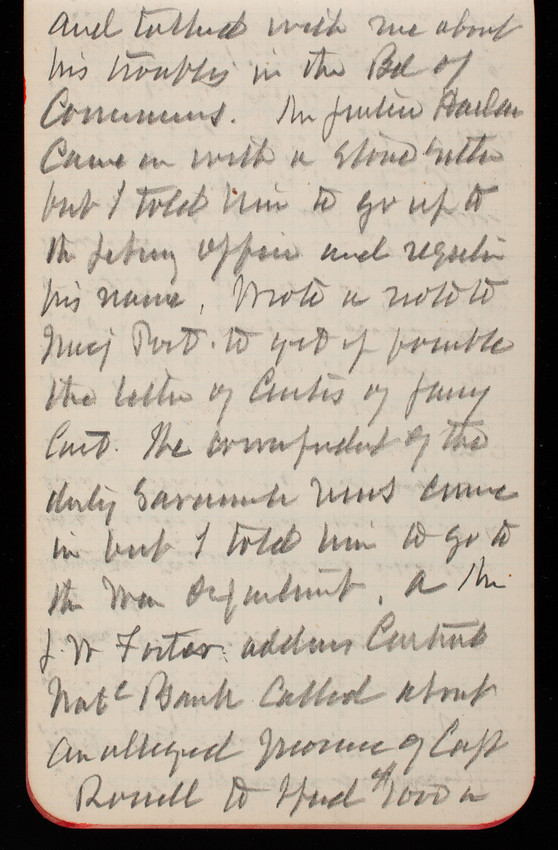 and talked with me about
his troubles in the Bd of
Commrs. Mr Justice Harlan
Came in with a
but I told him to go up to
the office and register
his name, Wrote a note to
Maj Post. to get if possible
the letter of Curtis of
The correspondent of the
daily Savannah News came
in but I told him to go to
the War Department, a Mr
J. W Foster address Central
Natl Bank Called about
an alleged promise of Capt
to